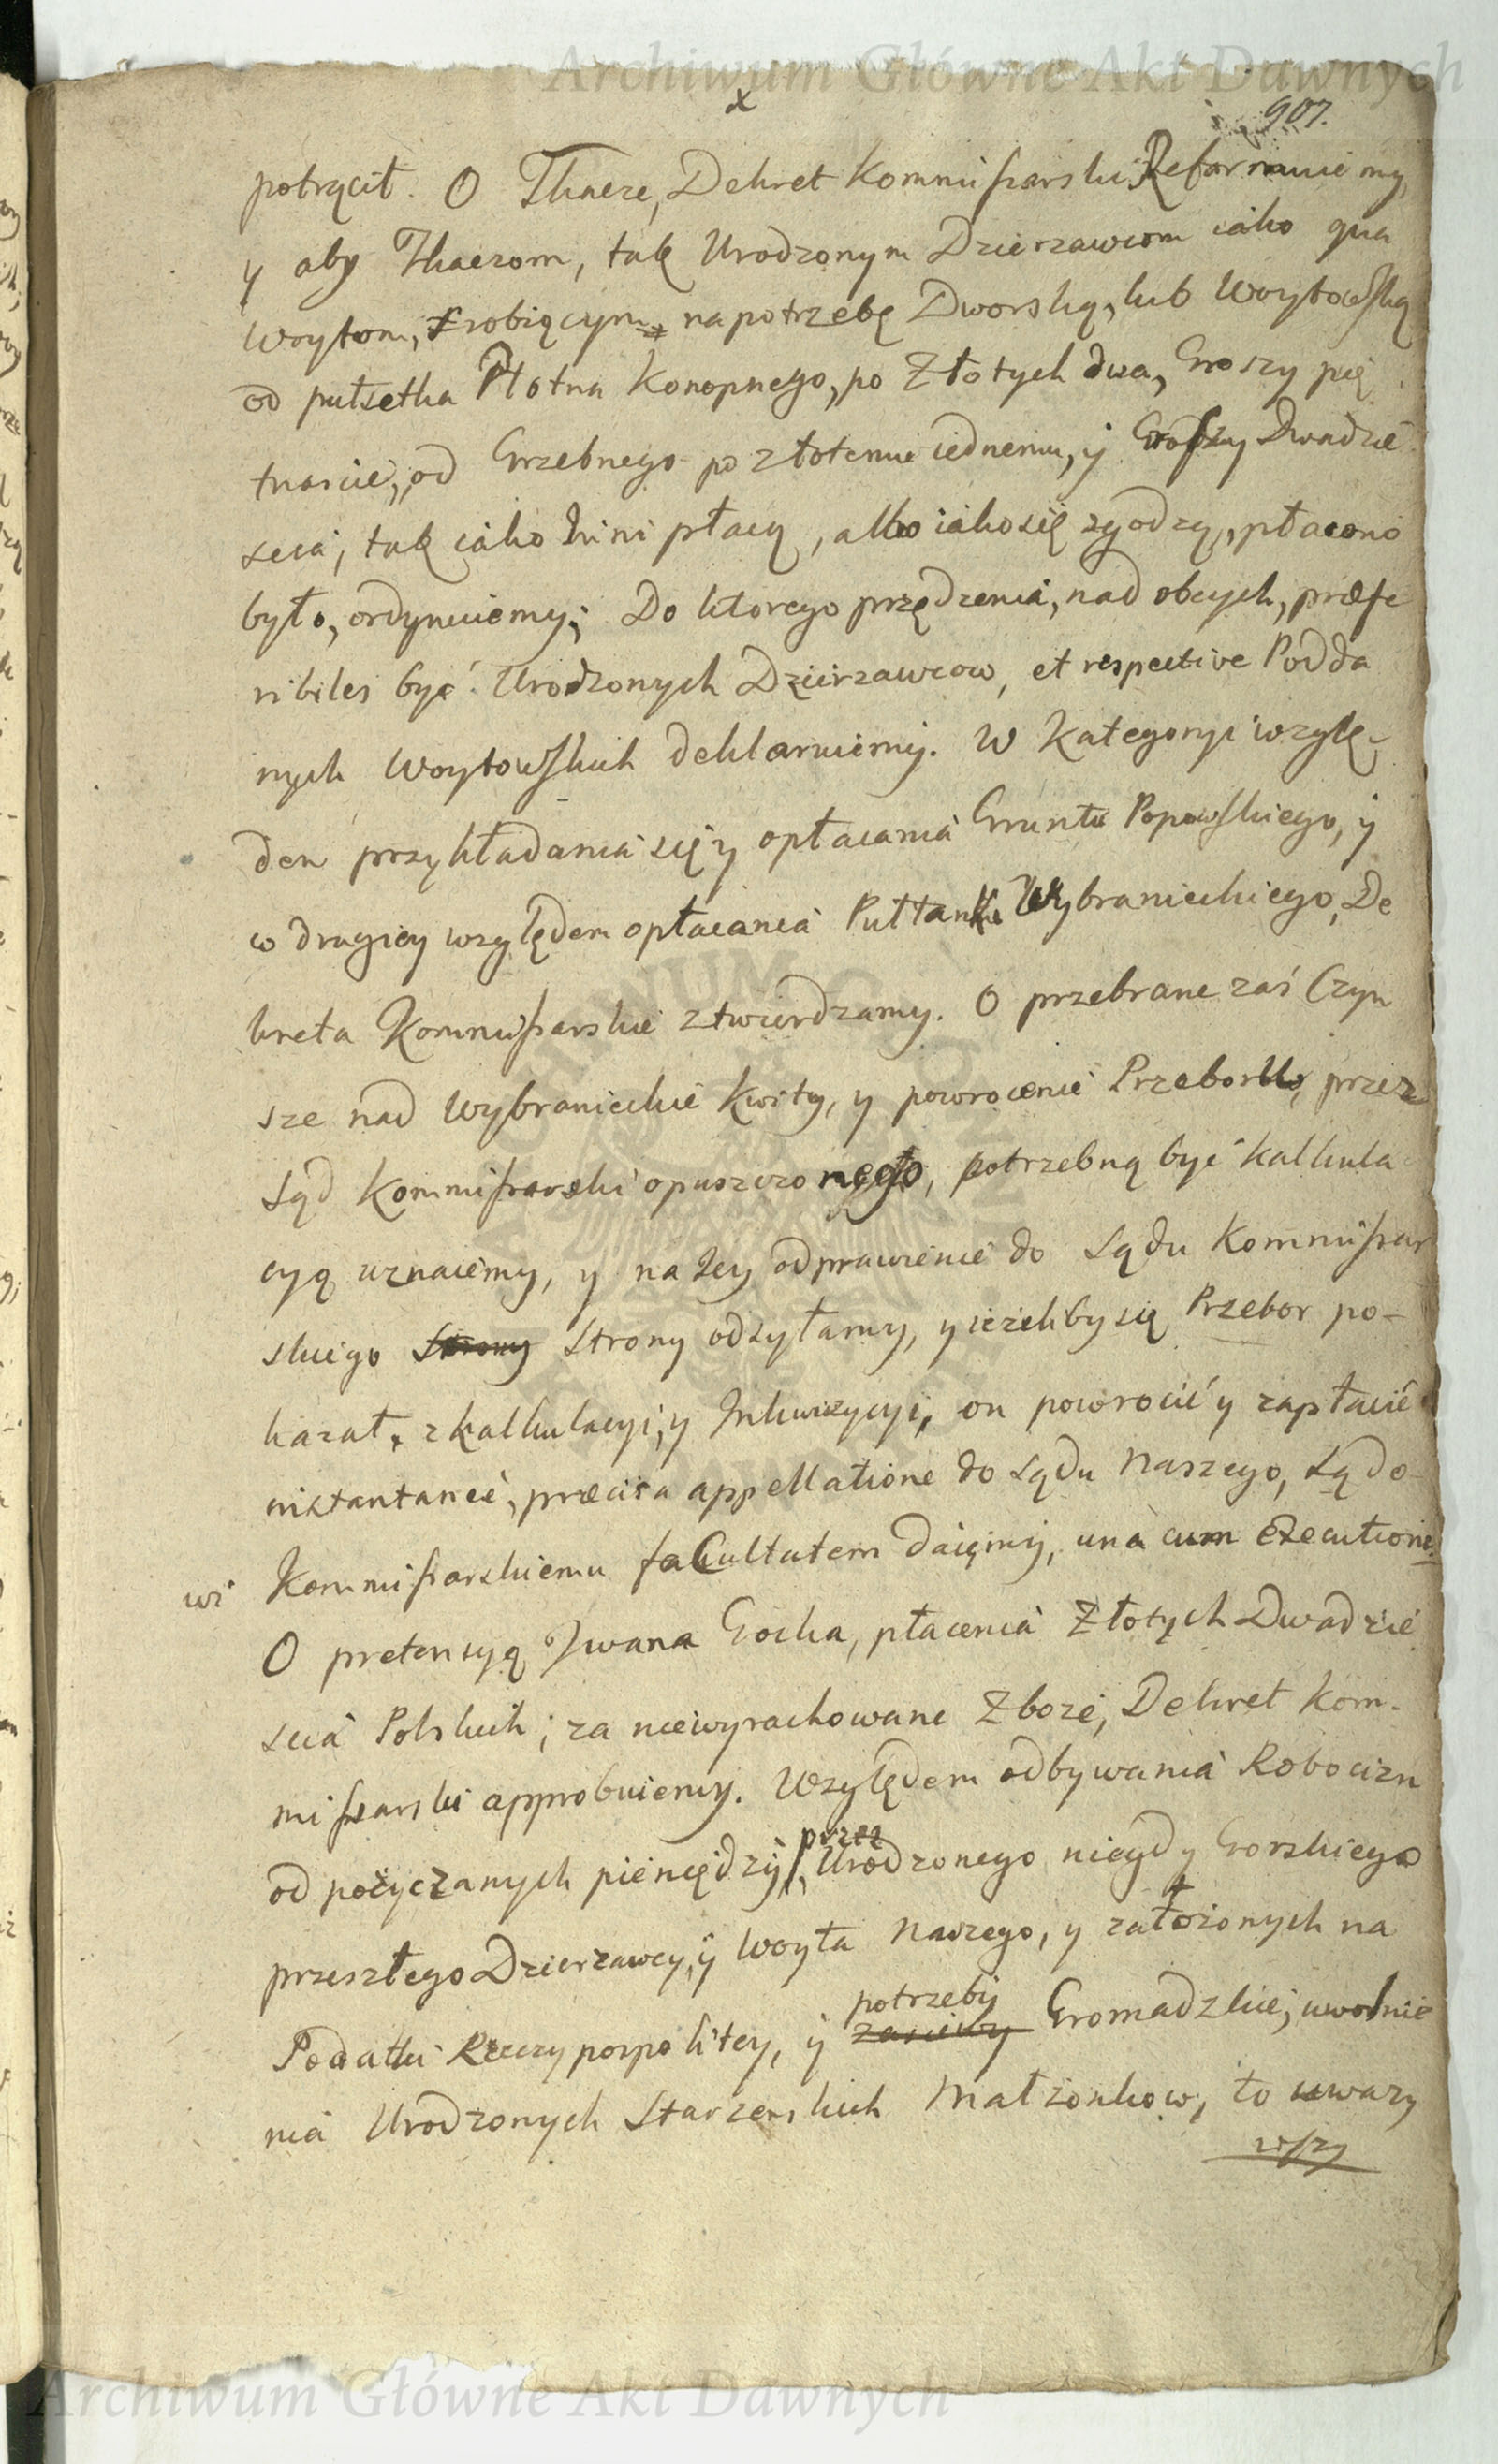 Archiwum Główne Akt Dawnych
x
907.
potrącił. O Tkacze, Dekret Kommissarski Reformuiemy,
y aby Tkaczom, tak Urodzonym Dzierzawcom iako qua
Woytom, robiącym, na potrzebę Dworską, lub Woytowską
od pułsetka Płotna Konopnego, po Złotych dwa, Groszy pię
tnascie, od Grzebnego po złotemu iednemu, y Groszy Dwadzie
scia, tak iako Inni płacą, albo iako się zgodzą, płacono
było, ordynuiemy; Do ktorego przędzenia, nad obcych, præfe
ribiles być Urodzonych Dzierzawcow, et respective Podda
nych Woytowskich deklaruiemy. W Kategoryi wzglę-
dem przykładania się y opłacania Gruntu Popowskiego, y
w drugiey względem opłacania Pułłanku Wybranieckiego, De
kreta Kommissarskie ztwierdzamy. O przebrane zaś Czyn
sze nad Wybranieckie Kwity, y powrocenie Przeborku, przez
Sąd Kommissarski opuszczonego, potrzebną być kalkula
cyą uznaiemy, y na Iey odprawienie do Sądu Kommissar
skiego Strony Strony odsyłamy, y ieżeliby się Przebor po-
kazał, z kalkulacyi, y Inkwizycyi, on powrocić y zapłacić
instantanee, præcisa appellatione do Sądu Naszego, Sądo-
wi Kommissarskiemu facultatem daiemy, una cum executione.
O pretensyą Iwana Gocka, płacenia Złotych Dwadzie
scia Polskich, za niewyrachowane Zboze, Dekret Kom-
missarski approbuiemy. Względem odbywania Robocizn
od pożyczanych pieniędzy, przez Urodzonego niegdy Gorskiego
przeszłego Dzierzawcy, y Woyta Naszego, y załozonych na
Podatki Rzeczypospolitey, y potrzeby Gromadzkie, uwolnie
nia Urodzonych Starzenskich Małzonkow, to uwazy
wszy
Archiwum Główne Akt Dawnych